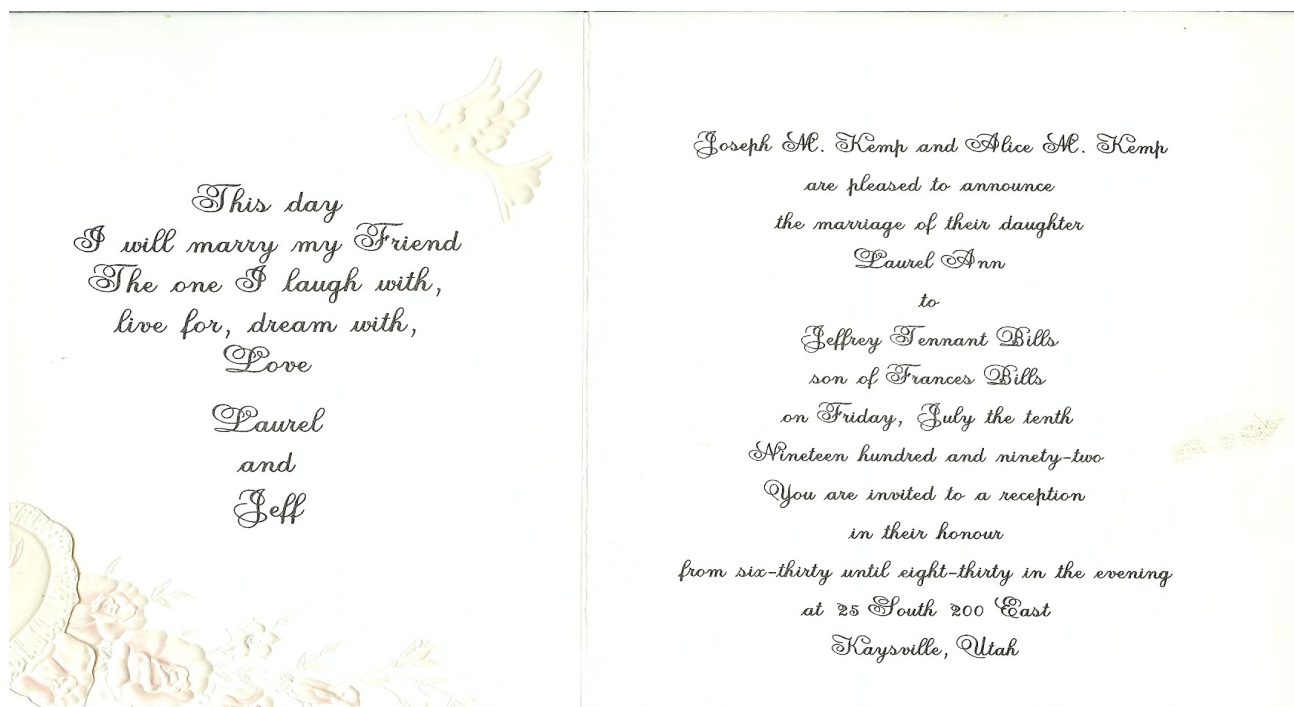 This day
I will marry my Friend
The one I laugh with,
live for, dream with,
Love
Laurel
and
Jeff
Joseph M. Kemp and Alice M. Kemp
are pleased to announce
the marriage of their daughter
Laurel Ann
to
Jeffrey Tennant Bills
son of Frances Bills
on Friday, July the tenth
Nineteen hundred and ninety-two
You are invited to a reception
in their honour
from six-thirty until eight-thirty in the evening
at 25 South 200 East
Kaysville, Utah